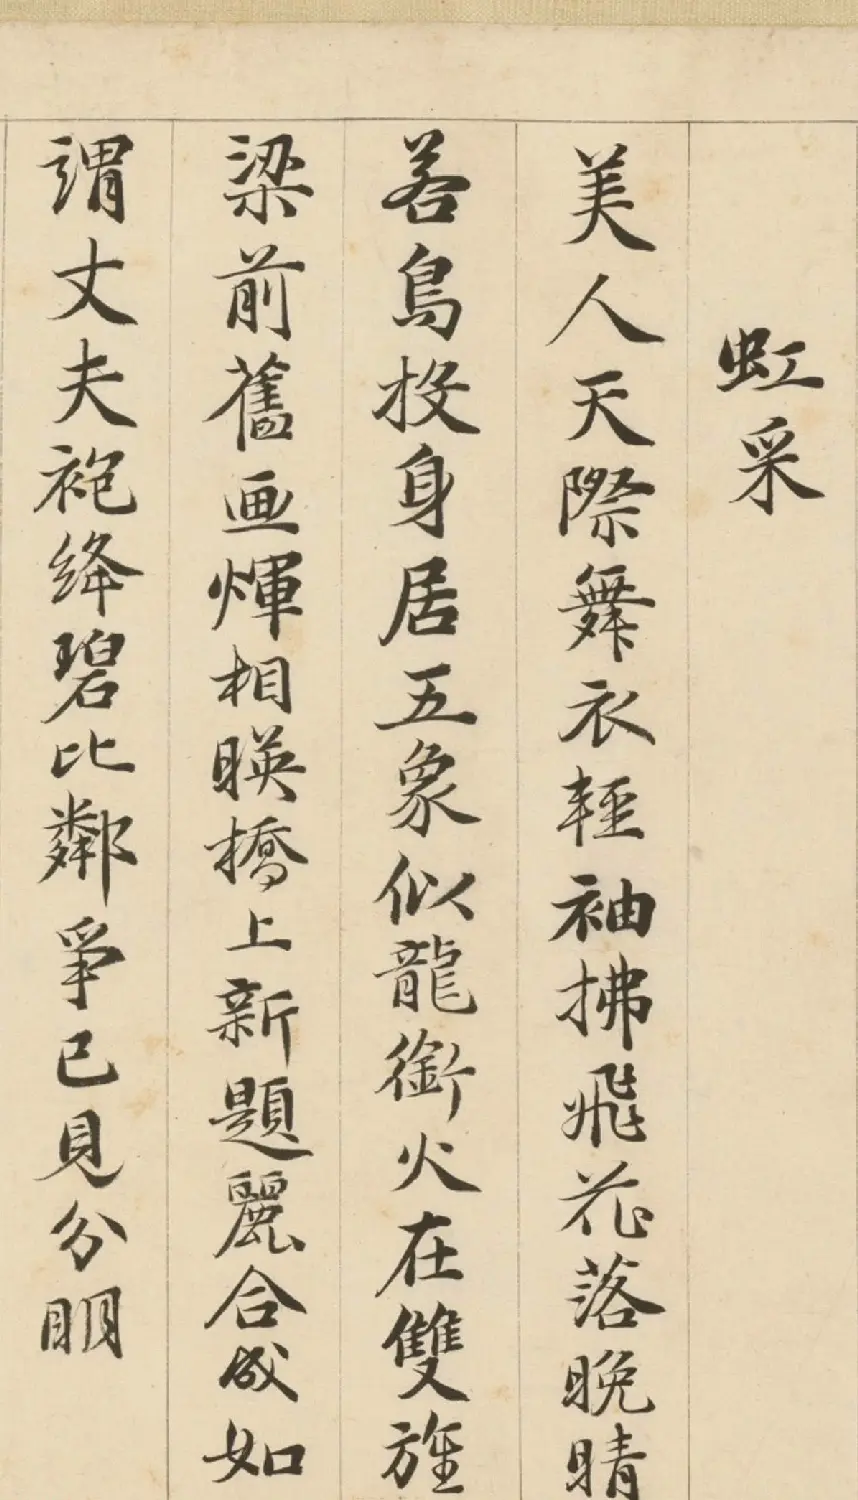 虹采
美人天際舞衣輕袖拂飛花落晚晴
若鳥投身居五象似龍銜火在雙旌
梁前舊画煇相暎橋上新題麗合成如
謂丈夫袍絳碧比鄰爭已見分明